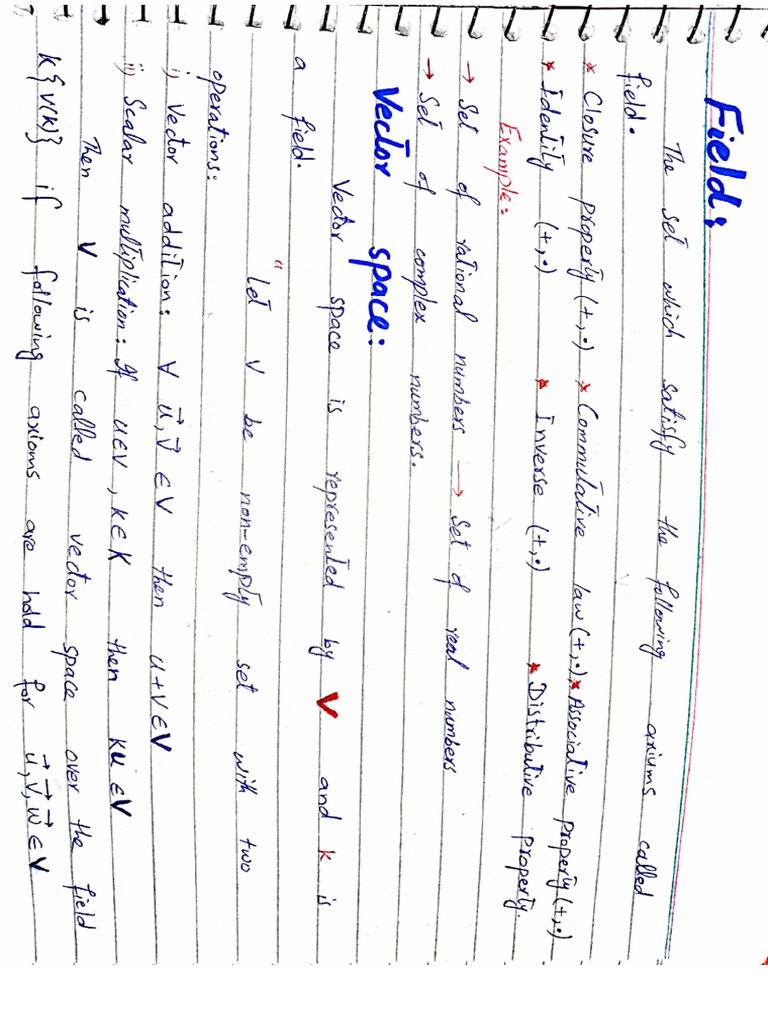 Field:
The set which satisfy the following axiums called
field.
* Closure property (+,•) * Commulative law (+,•) * Associative property (+,•)
* Identity (+,•) * Inverse (+,•) * Distributive property.
Example:
→ Set of rational numbers → Set of real numbers
→ Set of complex numbers.
Vector space:
Vector space is represented by V and k is
a field.
"Let V be non-emply set with two
operations:
i) Vector addition: ∀ u⃗, v⃗ ∈ V then u+v ∈ V
ii) Scalar multiplication: If u∈v, k∈K then ku ∈ V
Then V is called vector space over the field
K{V(K)} if following axioms are hold for u⃗, v⃗, w⃗ ∈ V